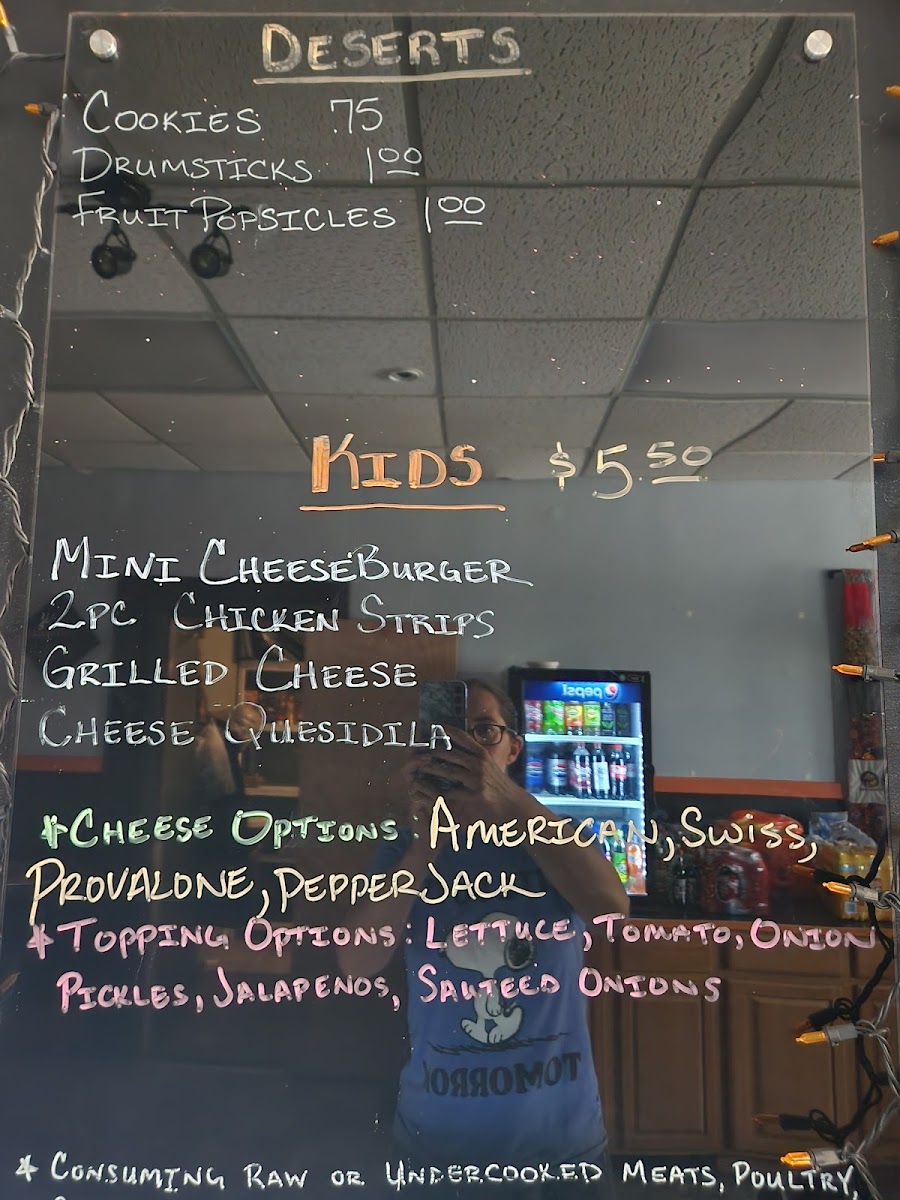 DESERTS
COOKIES .75
DRUMSTICKS 1.00
FRUIT POPSICLES 1.00
KIDS $5.50
MINI CHEESEBURGER
2PC CHICKEN STRIPS
GRILLED CHEESE
CHEESE QUESIDILA
pepsi
*CHEESE OPTIONS: AMERICAN, SWISS,
PROVALONE, PEPPER JACK
*TOPPING OPTIONS: LETTUCE, TOMATO, ONION
PICKLES, JALAPENOS, SAUTEED ONIONS
TOMORRO
* CONSUMING RAW OR UNDERCOOKED MEATS, POULTRY,